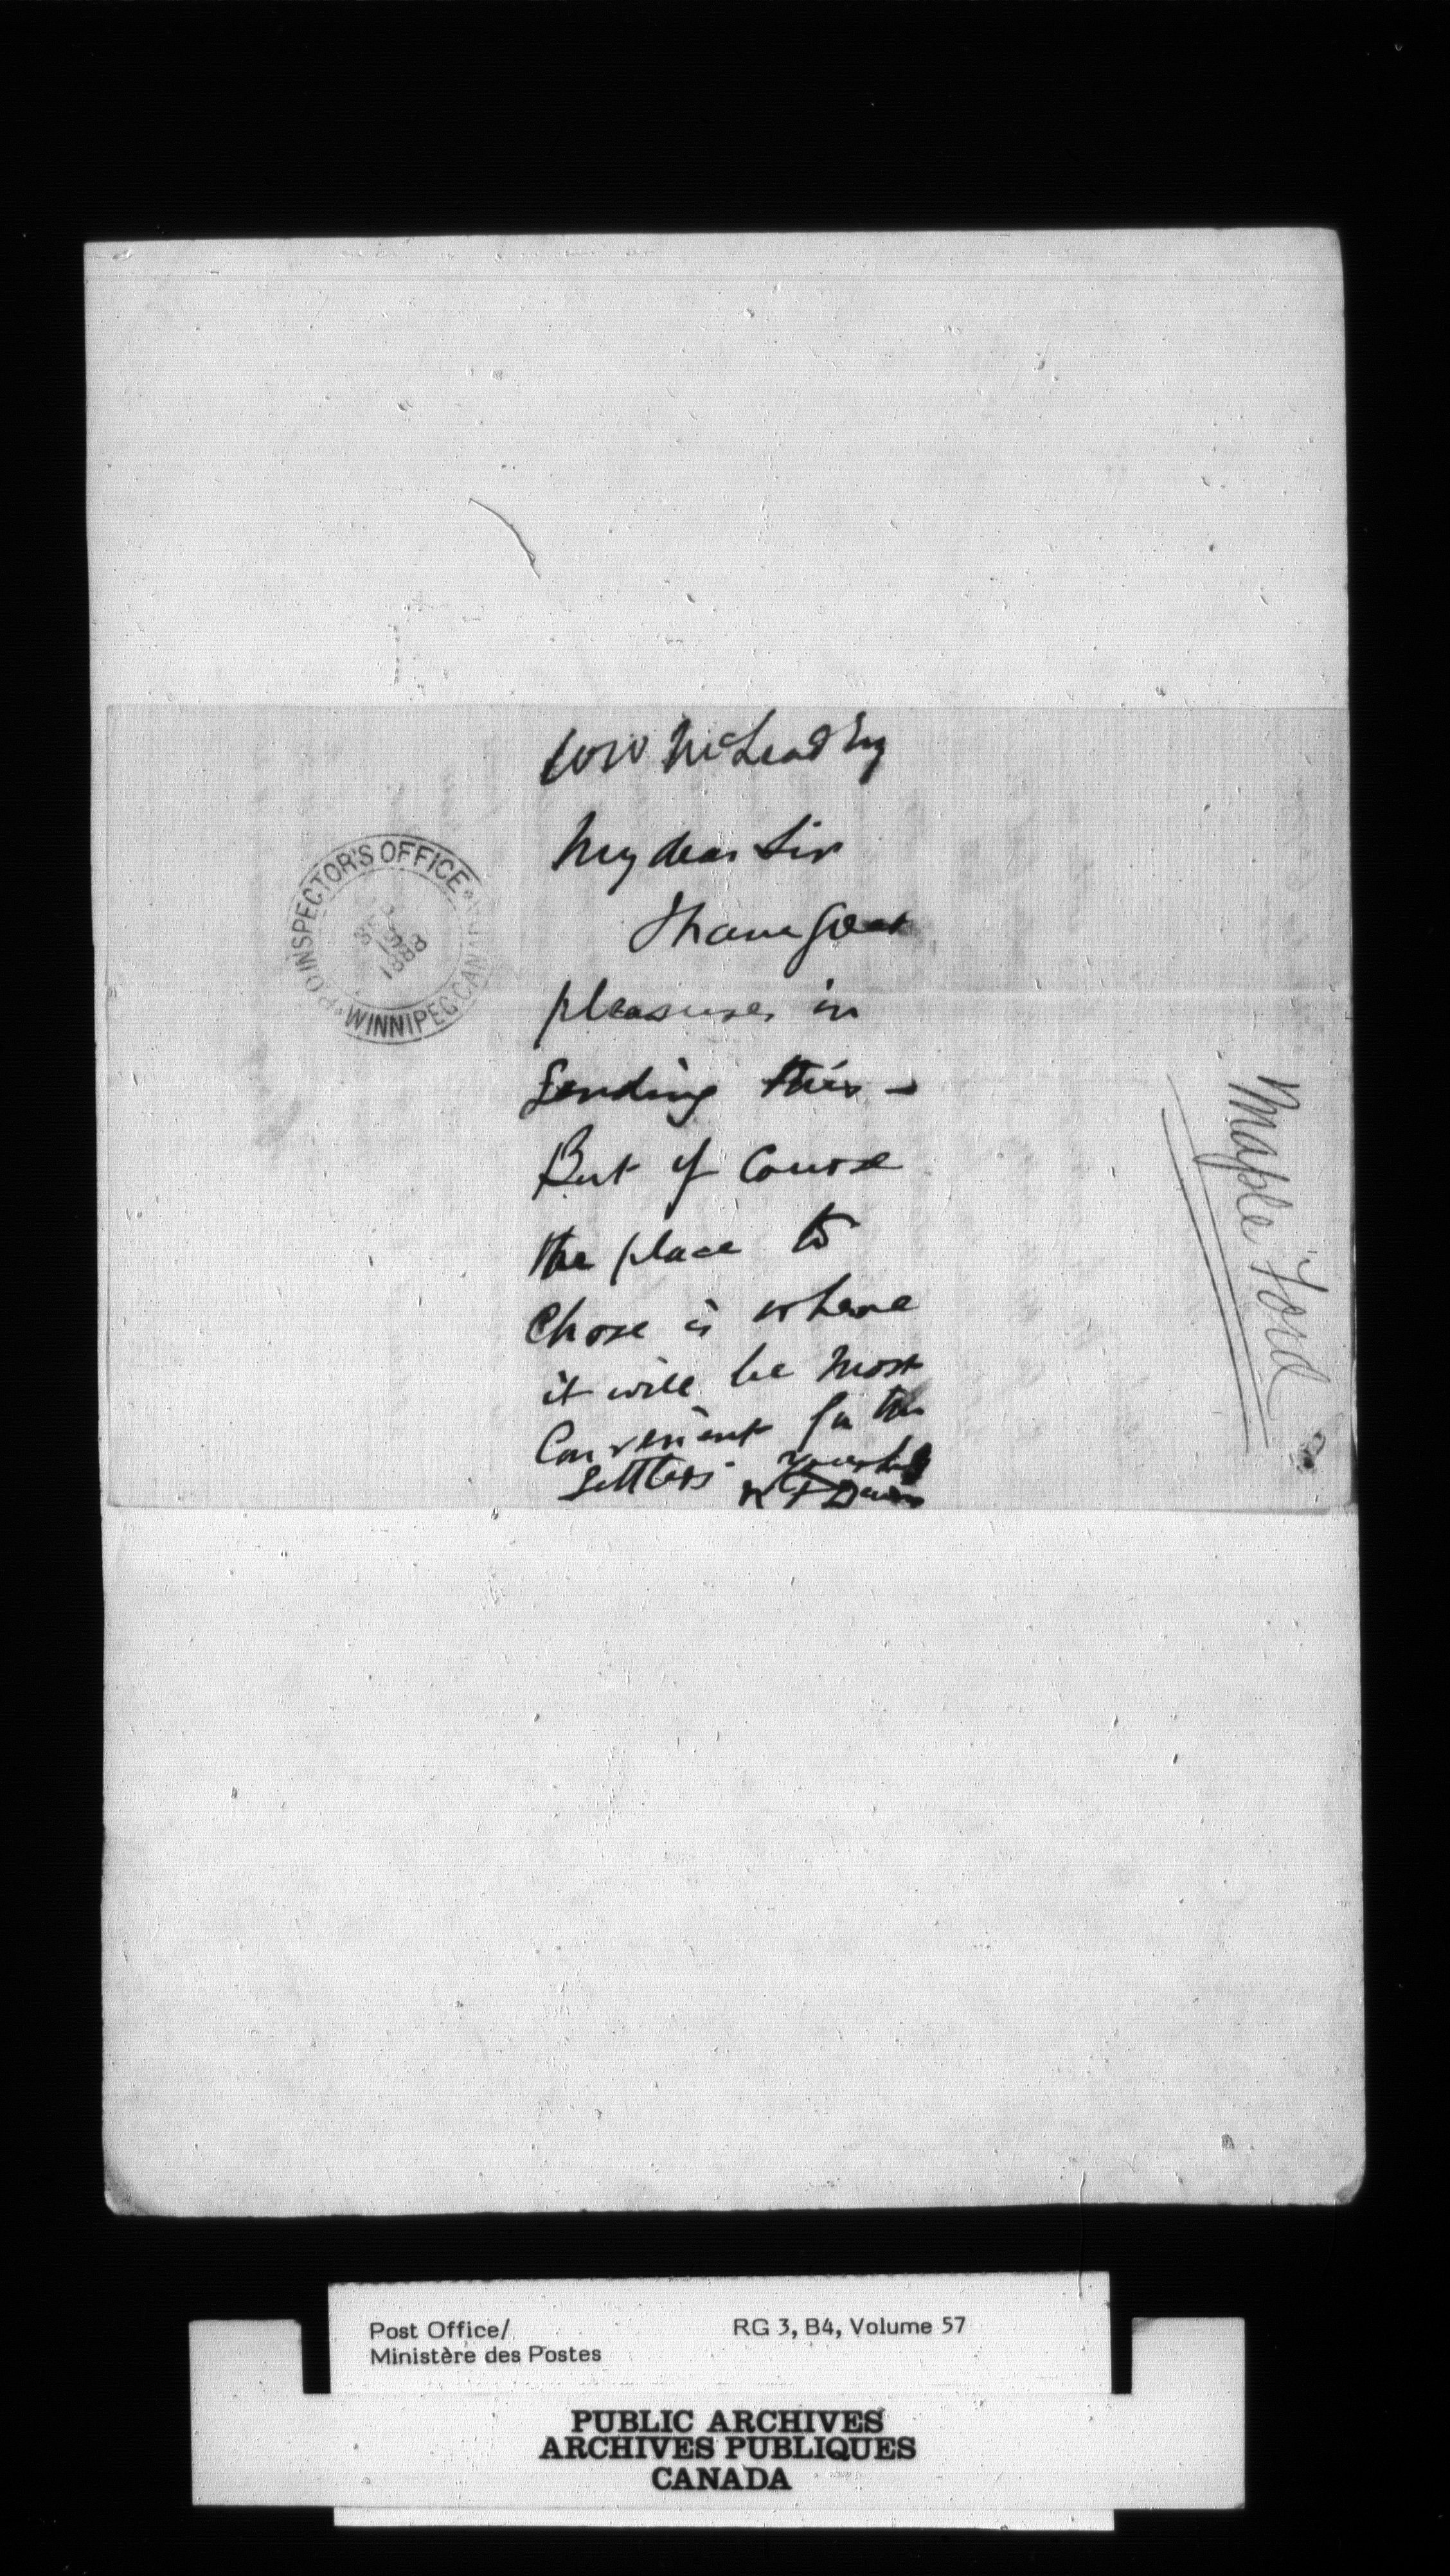 WW McLeod Esq
My dear Sir
I have great
pleasure in
sending this -
But of course
the place to
Chose is where
it will be most
Convenient for the
Settlers yours truly
Maple Ford
P.O INSPECTOR'S OFFICE
SEP
1888
WINNIPEG. CAN
Post Office/
Ministère des Postes
RG 3, B4, Volume 57
PUBLIC ARCHIVES
ARCHIVES PUBLIQUES
CANADA